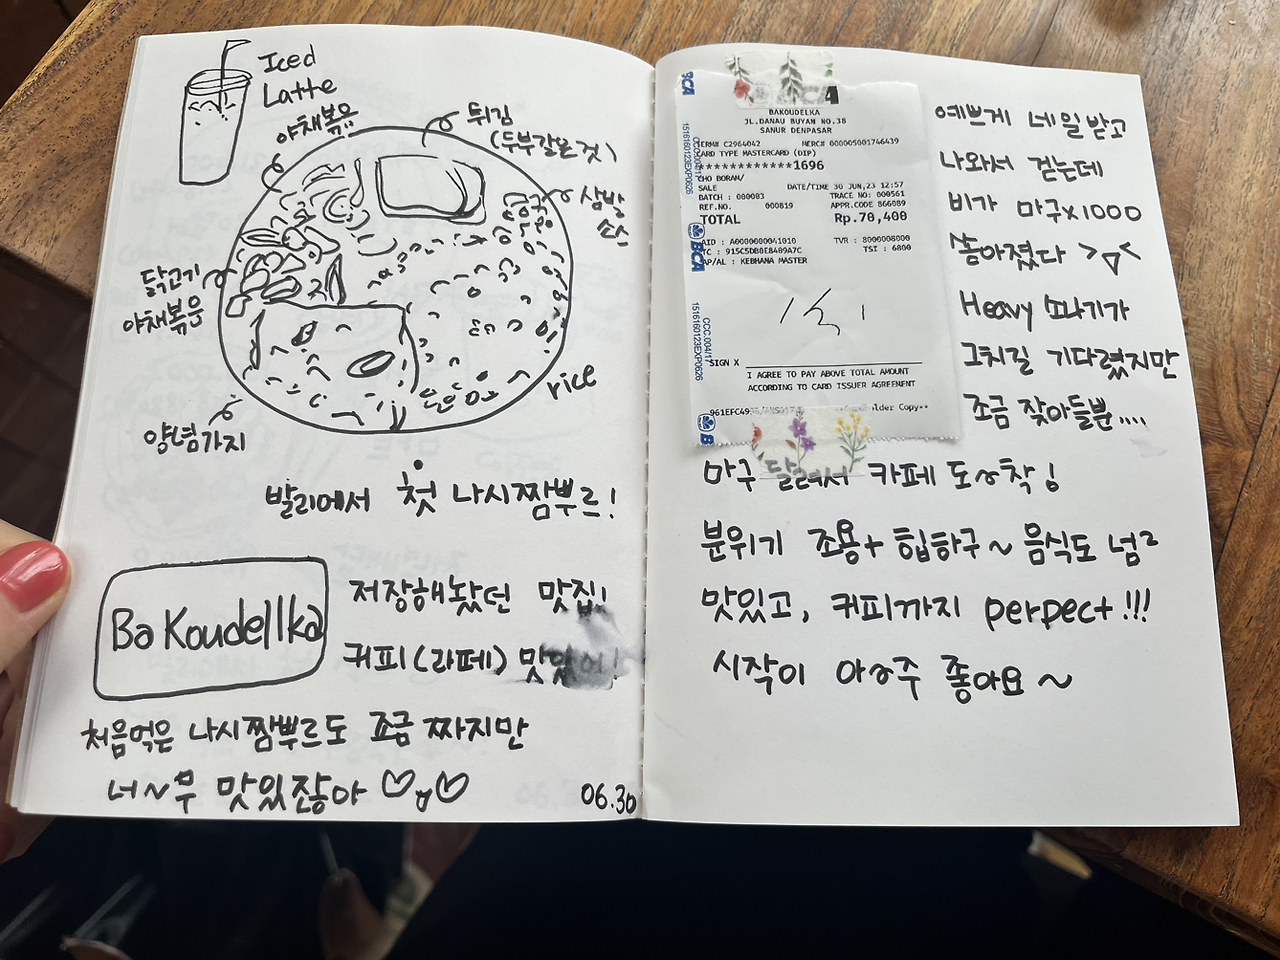 Iced
Latte
야채볶음
튀김
(두부같은것)
삼발
소스
닭고기
야채볶음
양념가지
rice
발리에서 첫 나시짬뿌르!
Ba Koudellka
저장해놨던 맛집!
커피(라떼) 맛있어!
처음먹은 나시짬뿌르도 조금 짜지만
너~무 맛있잖아
06.30
BCA
BAKOUDELKA
JL.DANAU BUYAN NO.3B
SANUR DENPASAR
TERM# C2964042 MERC# 000005001746439
CARD TYPE MASTERCARD (DIP)
************1696
CHO BORAN/
SALE DATE/TIME 30 JUN,23 12:57
BATCH : 000083 TRACE NO: 000561
REF.NO. 000819 APPR.CODE 866089
TOTAL Rp.70,400
AID : A0000000041010 TVR : 8000008000
TC : 915C5DB0E8409A7C TSI : 6800
AP/AL : KEBHANA MASTER
SIGN X
I AGREE TO PAY ABOVE TOTAL AMOUNT
ACCORDING TO CARD ISSUER AGREEMENT
Copy**
BCA
예쁘게 네일받고
나와서 걷는데
비가 마구x1000
쏟아졌다 >▽<
Heavy 소나기가
그치길 기다렸지만
조금 잦아들뿐....
마구 달려서 카페 도~착!
분위기 조용+ 힙하구~ 음식도 넘2
맛있고, 커피까지 perpect!!!
시작이 아~주 좋아요~